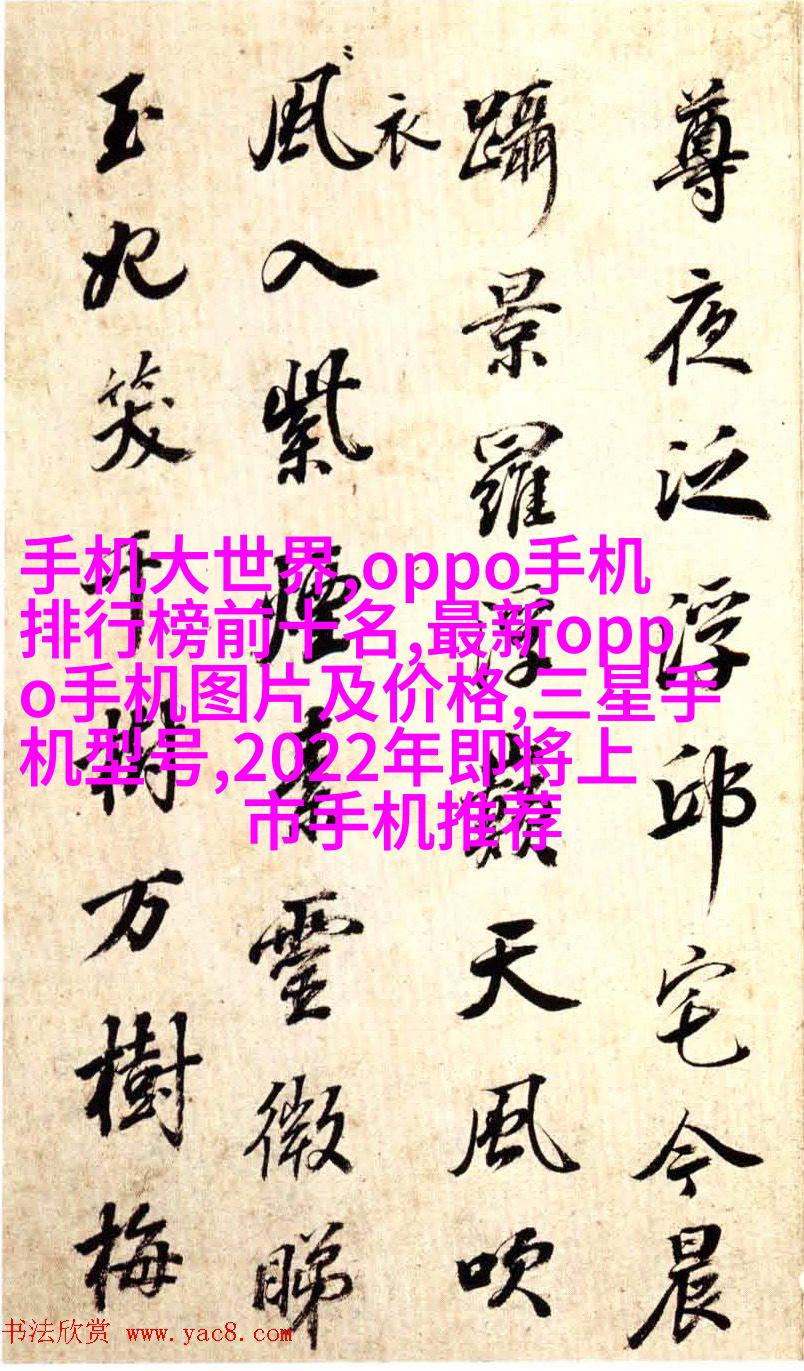 尊夜泛浮邱宅今晨
躡景羅浮巔天風吹
衣
風入紫煙素靈微睇
玉妃笑千樹万樹梅
手机大世界,oppo手机
排行榜前十名,最新opp
o手机图片及价格,三星手
机型号,2022年即将上
市手机推荐
书法欣赏 www.yac8.com